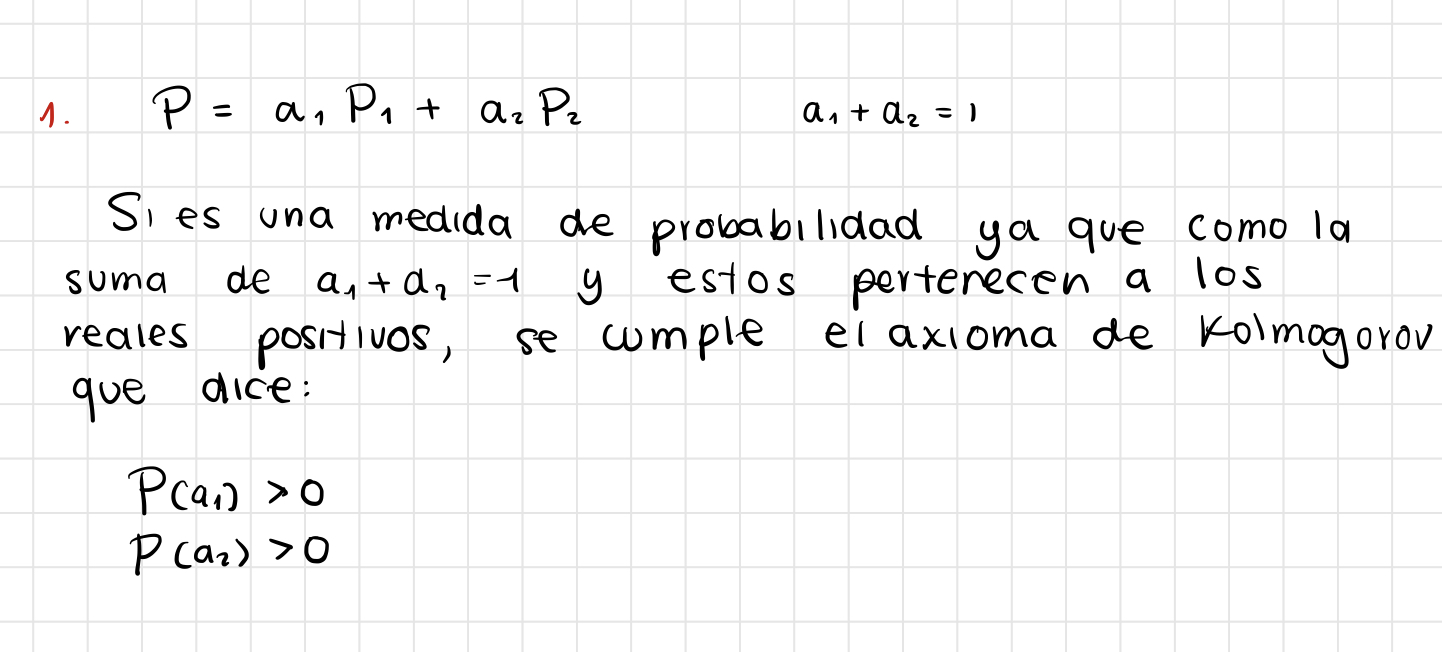 1. P = a₁ P₁ + a₂ P₂ a₁ + a₂ = 1
Si es una medida de probabilidad ya que como la
suma de a₁ + a₂ = 1 y estos pertenecen a los
reales positivos, se cumple el axioma de Kolmogorov
que dice:
P(a₁) > 0
P(a₂) > 0